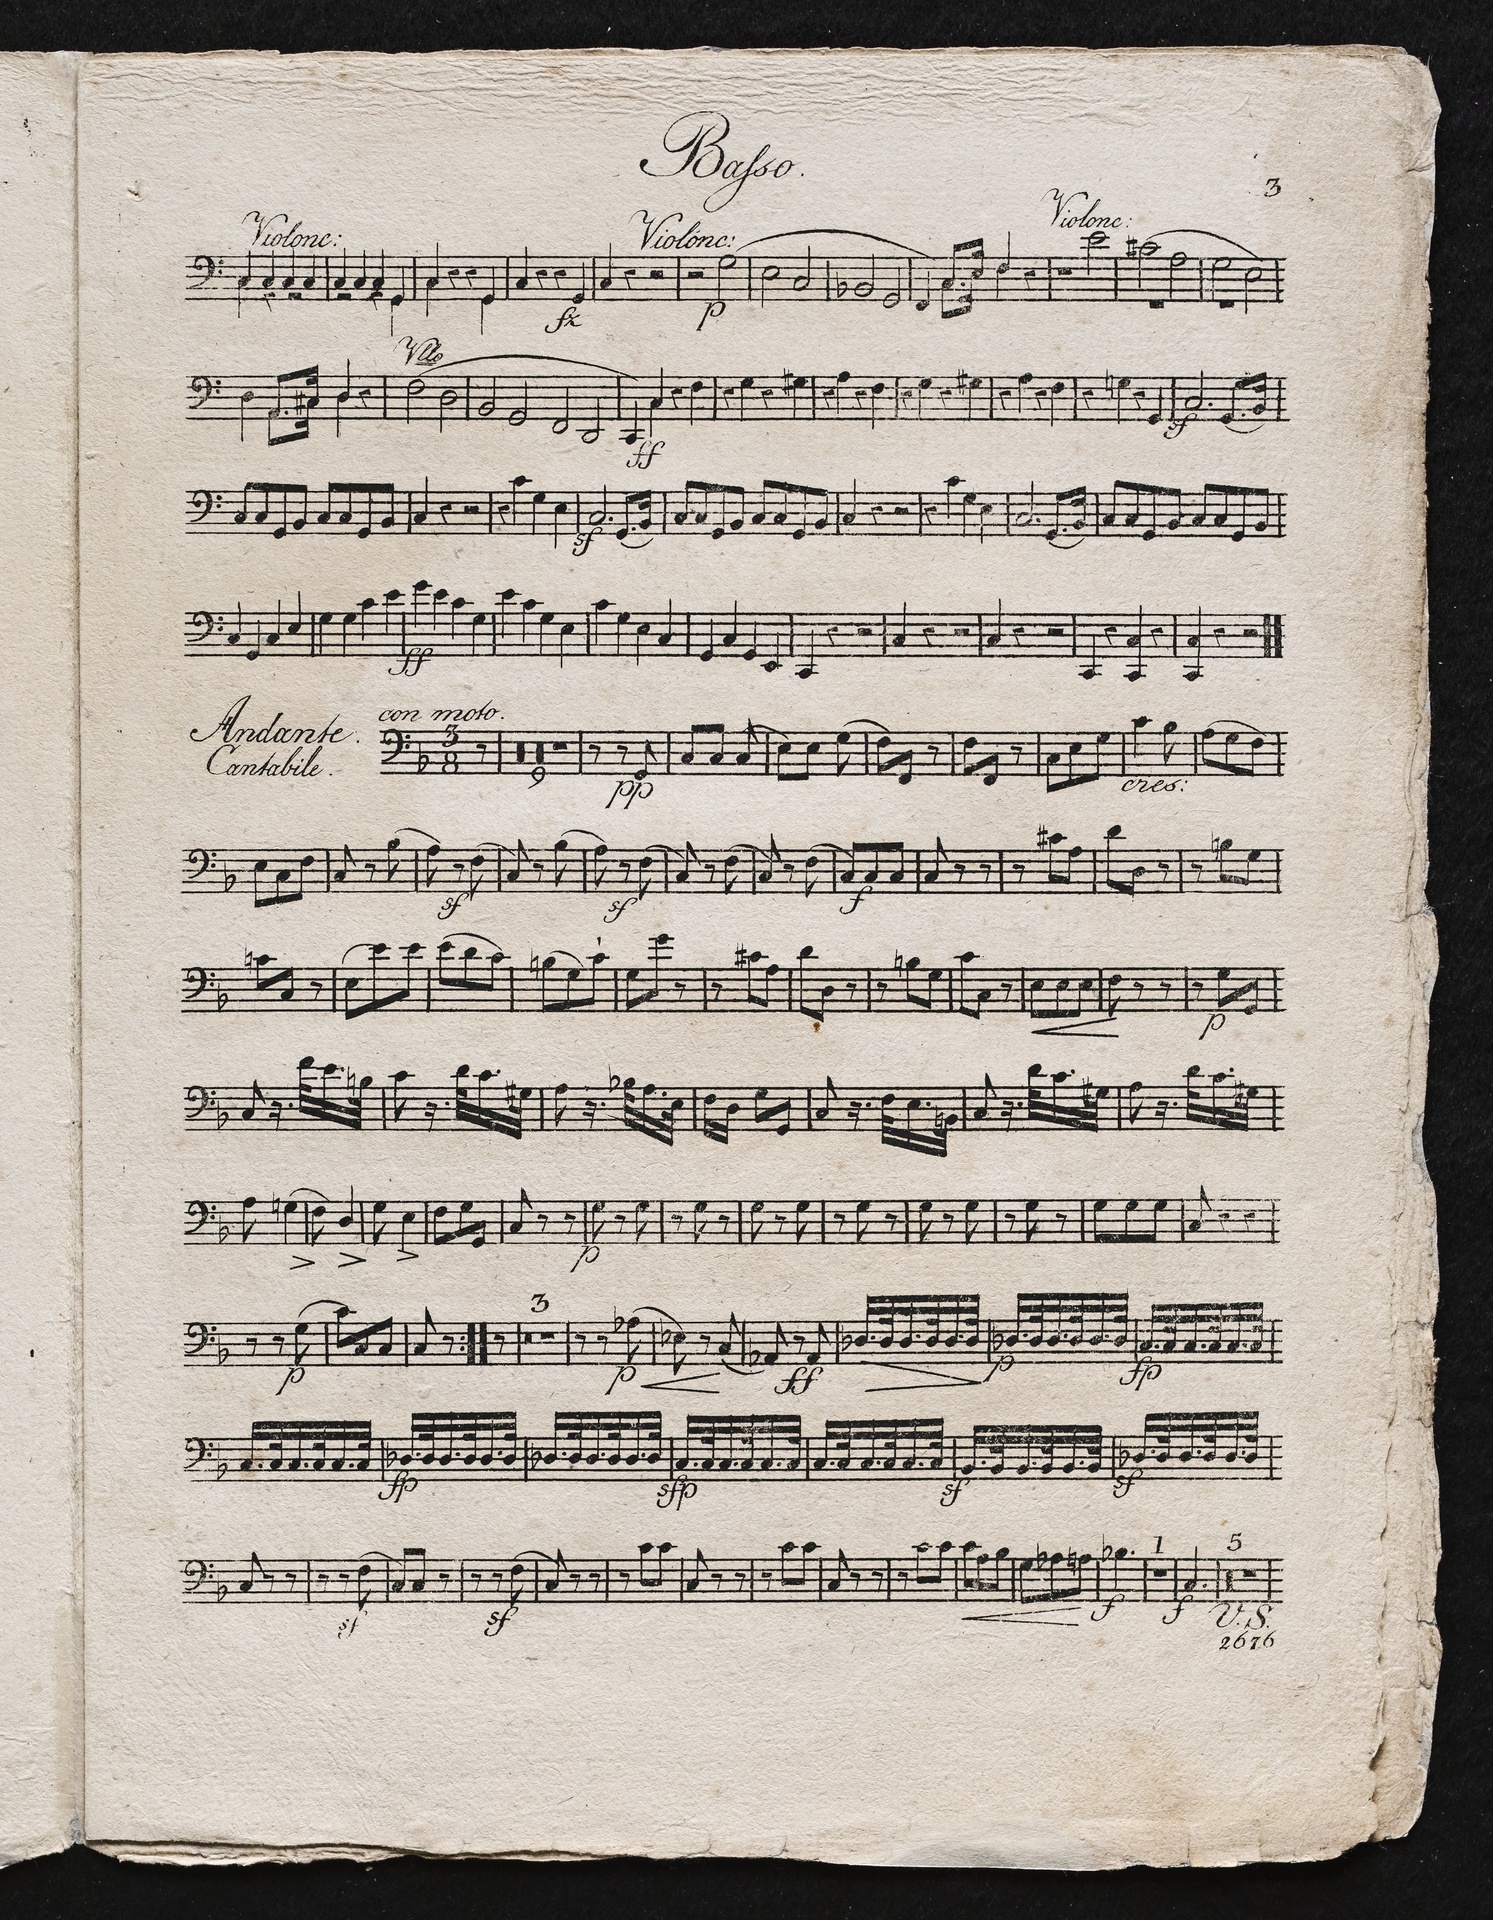 Baſso.
3
Violonc: Violonc: Violonc:
fz p
Vllo
ff sf
sf
ff
Andante con moto.
Cantabile.
3
8
9
pp cres:
sf sf f
p
p
3
p p ff p fp
fp sfp sf sf
1 5
sf sf f f V.S.
2676